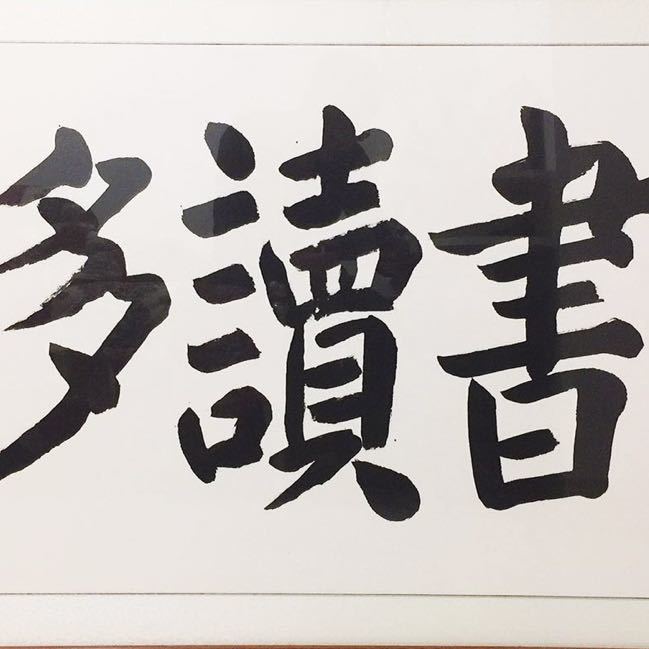 多讀書